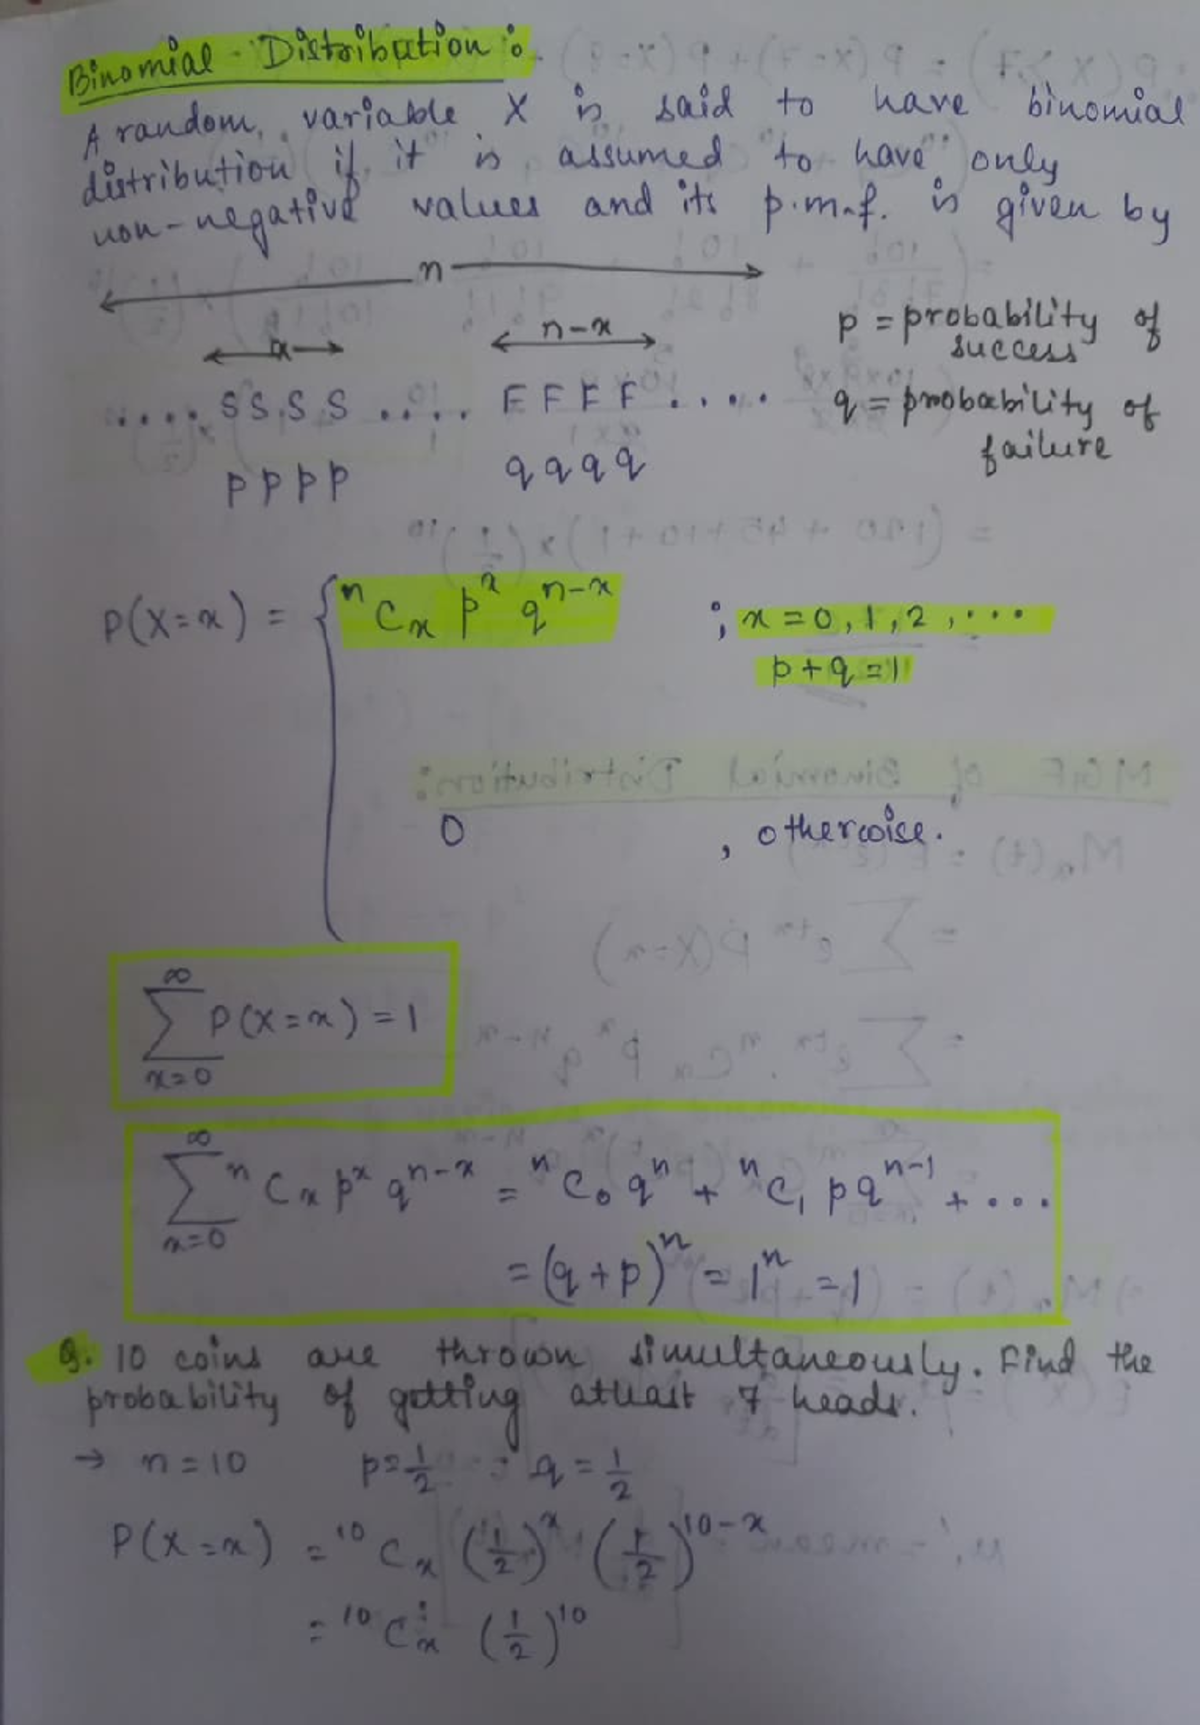 Binomial Distribution :
A random variable X is said to have binomial
distribution if it is assumed to have only
non-negative values and its p.m.f. is given by
n
x n-x p = probability of success
.... S S S S ..... F F F F .... q = probability of failure
p p p p q q q q
P(X=x) = { ⁿCₓ pˣ qⁿ⁻ˣ ; x = 0, 1, 2, ...
p + q = 1
0 , otherwise.
∞
∑ P(X=x) = 1
x=0
∞
∑ ⁿCₓ pˣ qⁿ⁻ˣ = ⁿC₀ qⁿ + ⁿC₁ p qⁿ⁻¹ + ...
x=0
= (q+p)ⁿ = 1ⁿ = 1
Q. 10 coins are thrown simultaneously. Find the
probability of getting atleast 7 heads.
→ n = 10 p = 1/2 q = 1/2
P(X=x) = ¹⁰Cₓ (1/2)ˣ (1/2)¹⁰⁻ˣ
= ¹⁰Cₓ (1/2)¹⁰